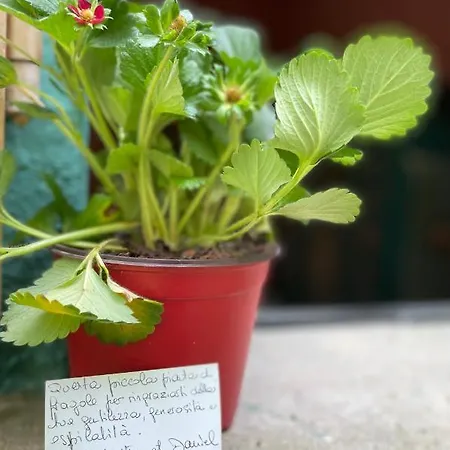 Questa piccola pianta di
fragole per ringraziarti della
tua gentilezza, generosità e
ospitalità.
Daniel